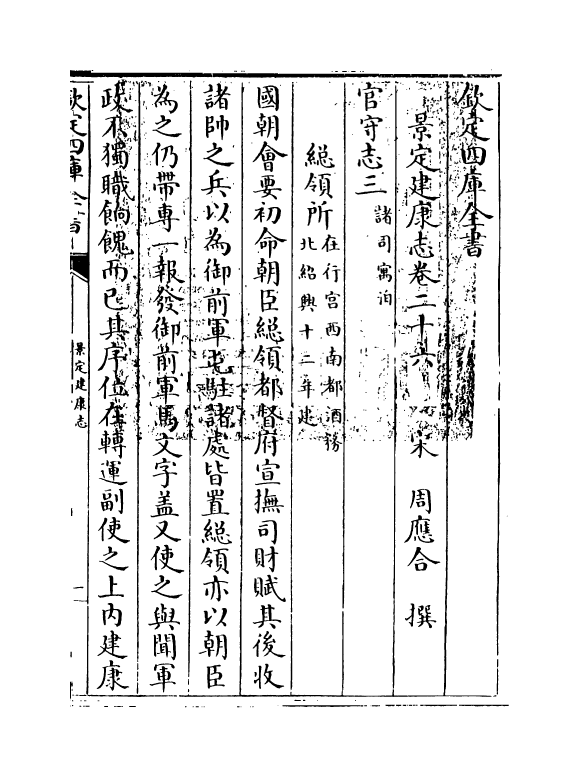 欽定四庫全書
景定建康志卷二十六 宋 周應合 撰
官守志三 諸司寓治
總領所 在行宫西南都酒務
北紹興十二年建
國朝會要初命朝臣總領都督府宣撫司財賦其後收
諸帥之兵以為御前軍屯駐諸處皆置總領亦以朝臣
為之仍帶專一報發御前軍馬文字盖又使之與聞軍
政不獨職餉餽而已其序位在轉運副使之上内建康
欽定四庫全書
景定建康志
一